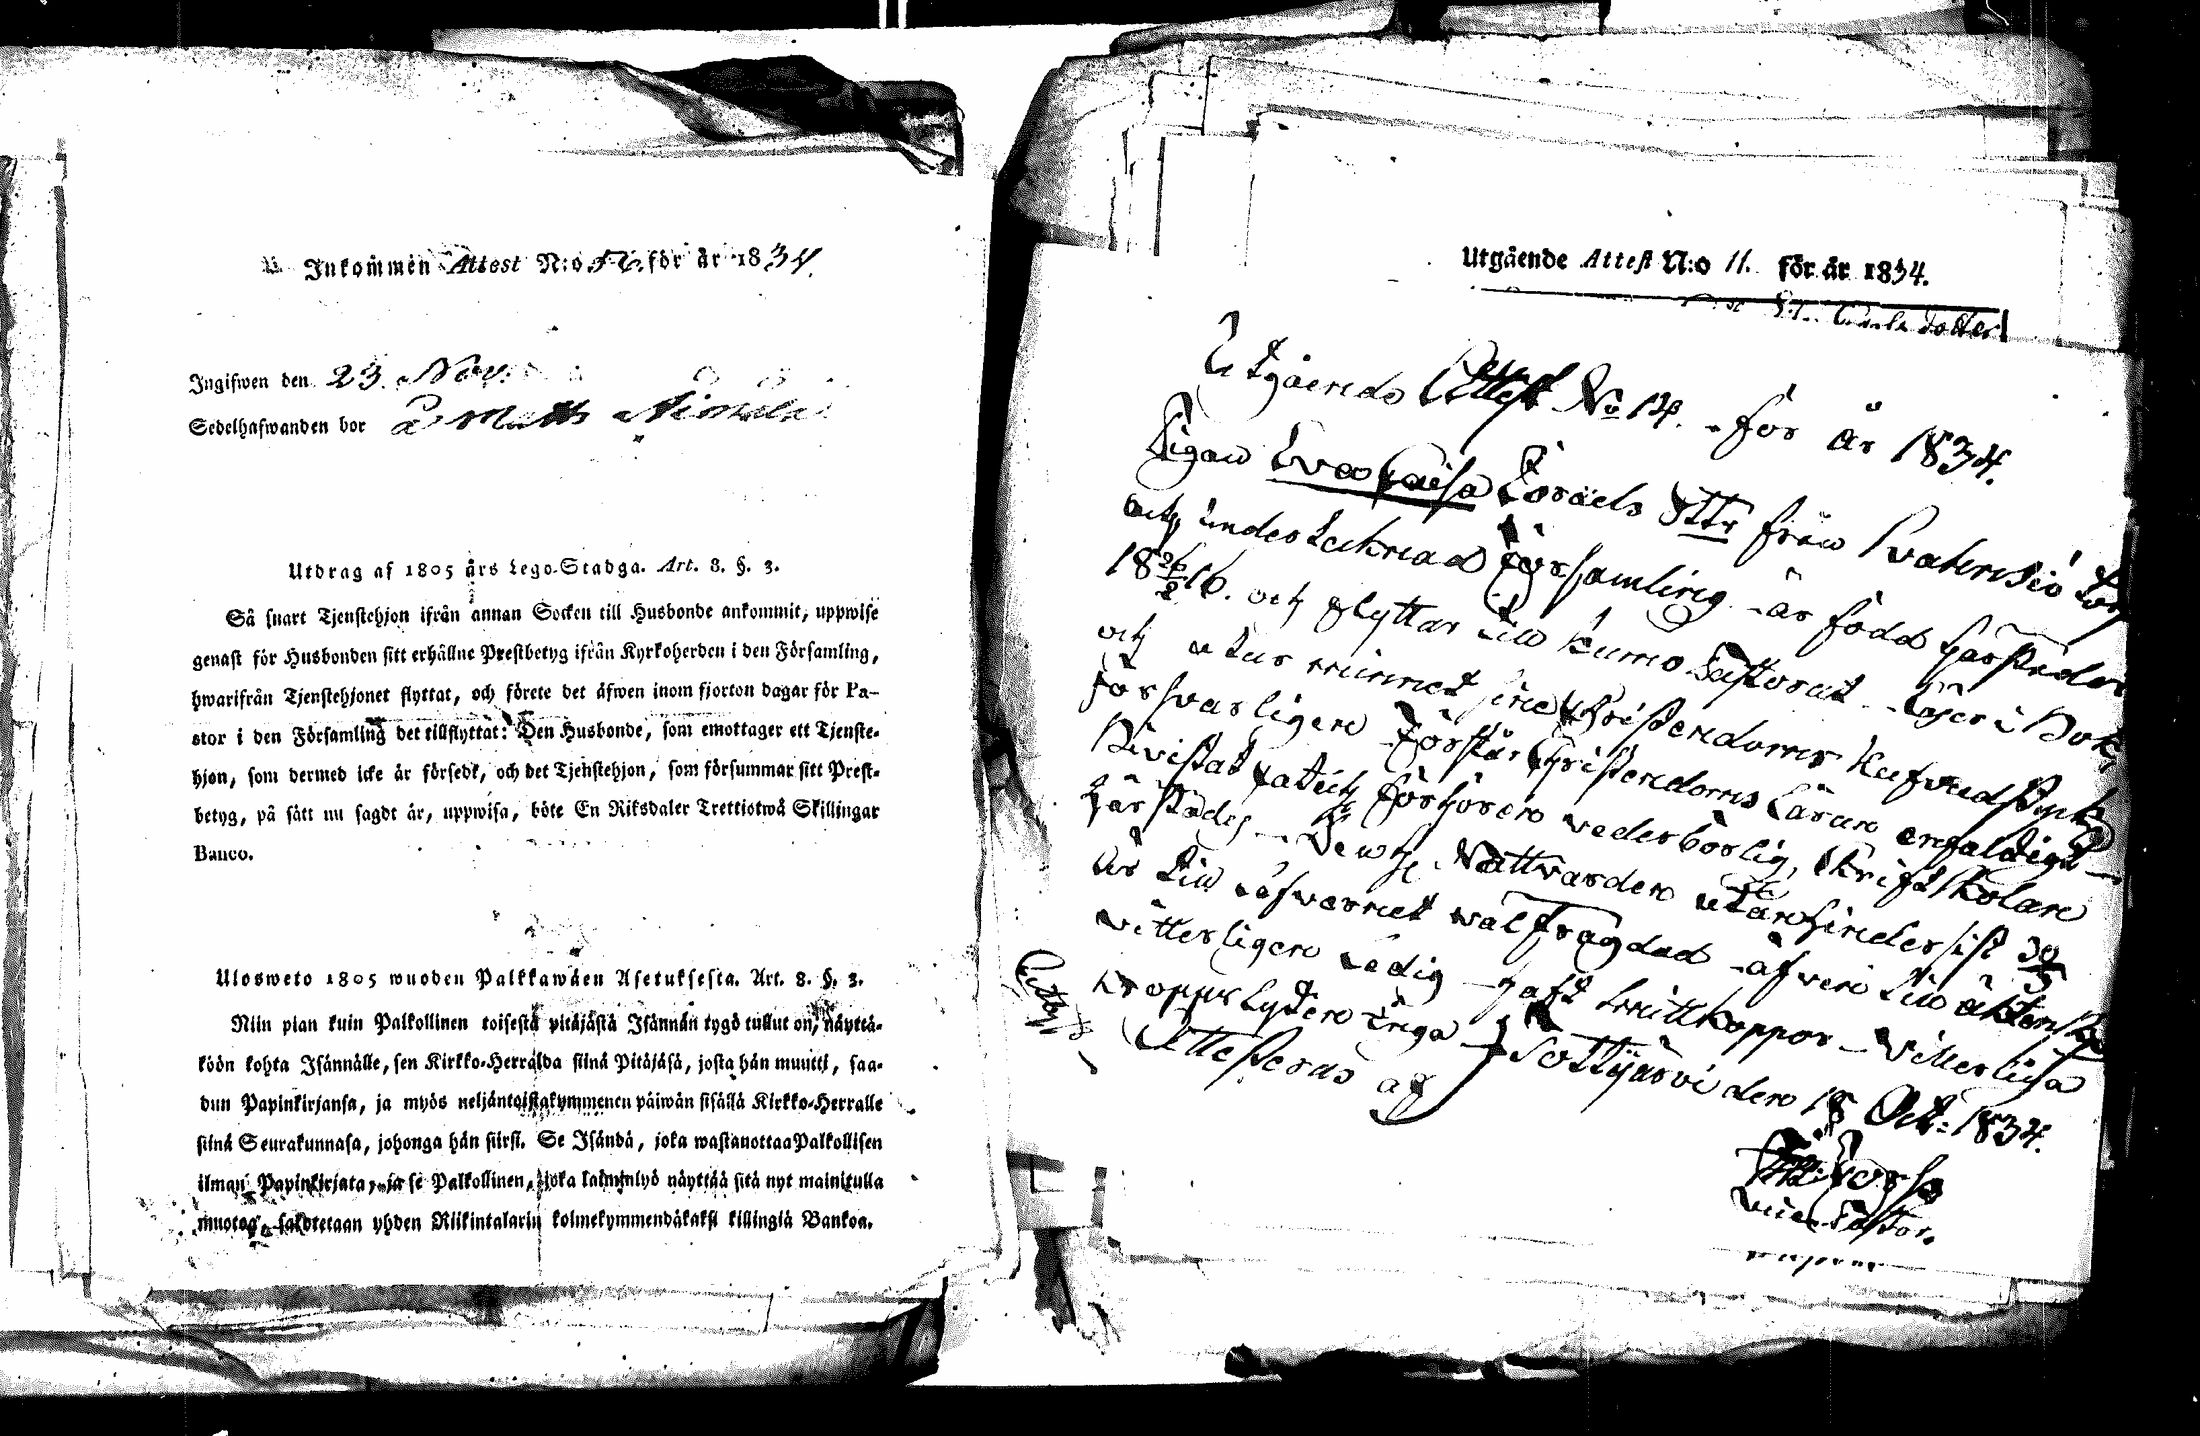 Inkommen Attest N:o för år 1834.
Ingifwen den 23. Nov:
Sedelhafwanden bor å Matts
Utdrag af 1805 års Lego-Stadga. Art. 8. §. 3.
Så snart Tjenstehjon ifrån annan Socken till Husbonde ankommit, uppwise
genast för Husbonden sitt erhållne Prestbetyg ifrån Kyrkoherden i den Församling,
hwarifrån Tjenstehjonet flyttat, och förete det äfwen inom fjorton dagar för Pa-
stor i den Församling det tillflyttat: Den Husbonde, som emottager ett Tjenste-
hjon, som dermed icke är försedt, och det Tjenstehjon, som försummar sitt Prest-
betyg, på sätt nu sagdt är, uppwisa, böte En Riksdaler Trettiotwå Skillingar
Banco.
Ulosweto 1805 wuoden Palkkawäen Asetuksesta. Art. 8. §. 3.
Niin pian kuin Palkollinen toisesta pitäjästä Isännän tygö tullut on, näyttä-
köön kohta Isännälle, sen Kirkko-Herralda siinä Pitäjäsä, josta hän muutti, saa-
dun Papinkirjansa, ja myös neljäntoistakymmenen päiwän sisällä Kirkko-Herralle
siinä Seurakunnasa, johonga hän siirsi. Se Isändä, joka wastanottaa Palkollisen
ilman Papinkirjata, ja se Palkollinen, joka laiminlyö näyttää sitä nyt mainitulla
muotoa, sakotetaan yhden Riikintalarin kolmekymmendäkaksi killingiä Bankoa.
Utgående Attest N:o 11. för år 1834.
dotter
Utgåends Attest No 14. för år 1834.
Pigan Eva Caisa Israels Dttr från
och undertecknad Församling är född härstädes
18 26/2 16. och flyttar till Kumo Pastorat Läser i Bok
och utur minnet sine Christendoms hufvudstyck
försvarligen Förstår Christendoms Läran enfaldigt
Bivistat Förhören vederbörlig, Skriftskolan
härstädes Nattvarden utan hinder sist 30/3
är till väl frägdad äfven till äktensk
vitterligen Ledig haft Smittkoppor Vitterliga
kroppslyten inga Sottijärvi den 18 Oct: 1834.
Attesteras af
vice Pastor.